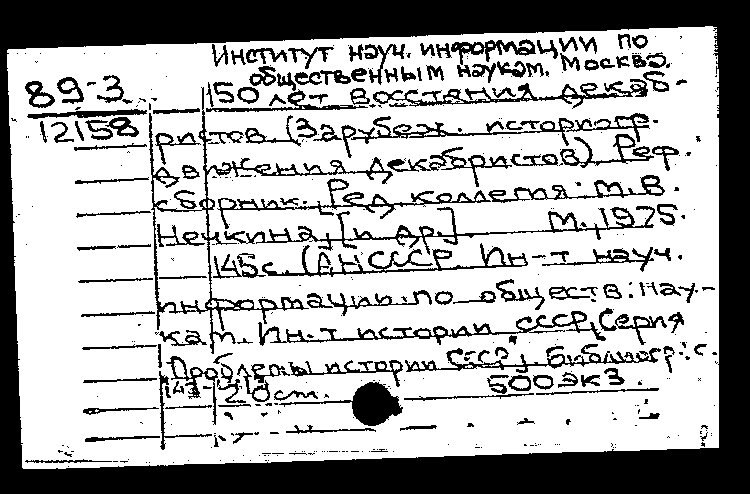 Институт науч. информации по
общественным наукам. Москва.
89-3
150 лет восстания декаб-
12158
ристов (Зарубеж. историогр.
движения декабристов). Реф.
сборник. Ред. коллегия: М.В.
Нечкина, [и др.]. М., 1975.
145с. (АН СССР. Ин-т науч.
информации по обществ. нау-
кам. Ин-т истории СССР. Серия
"Проблемы истории СССР"). Библиогр.: с.
20 см. 500 экз.